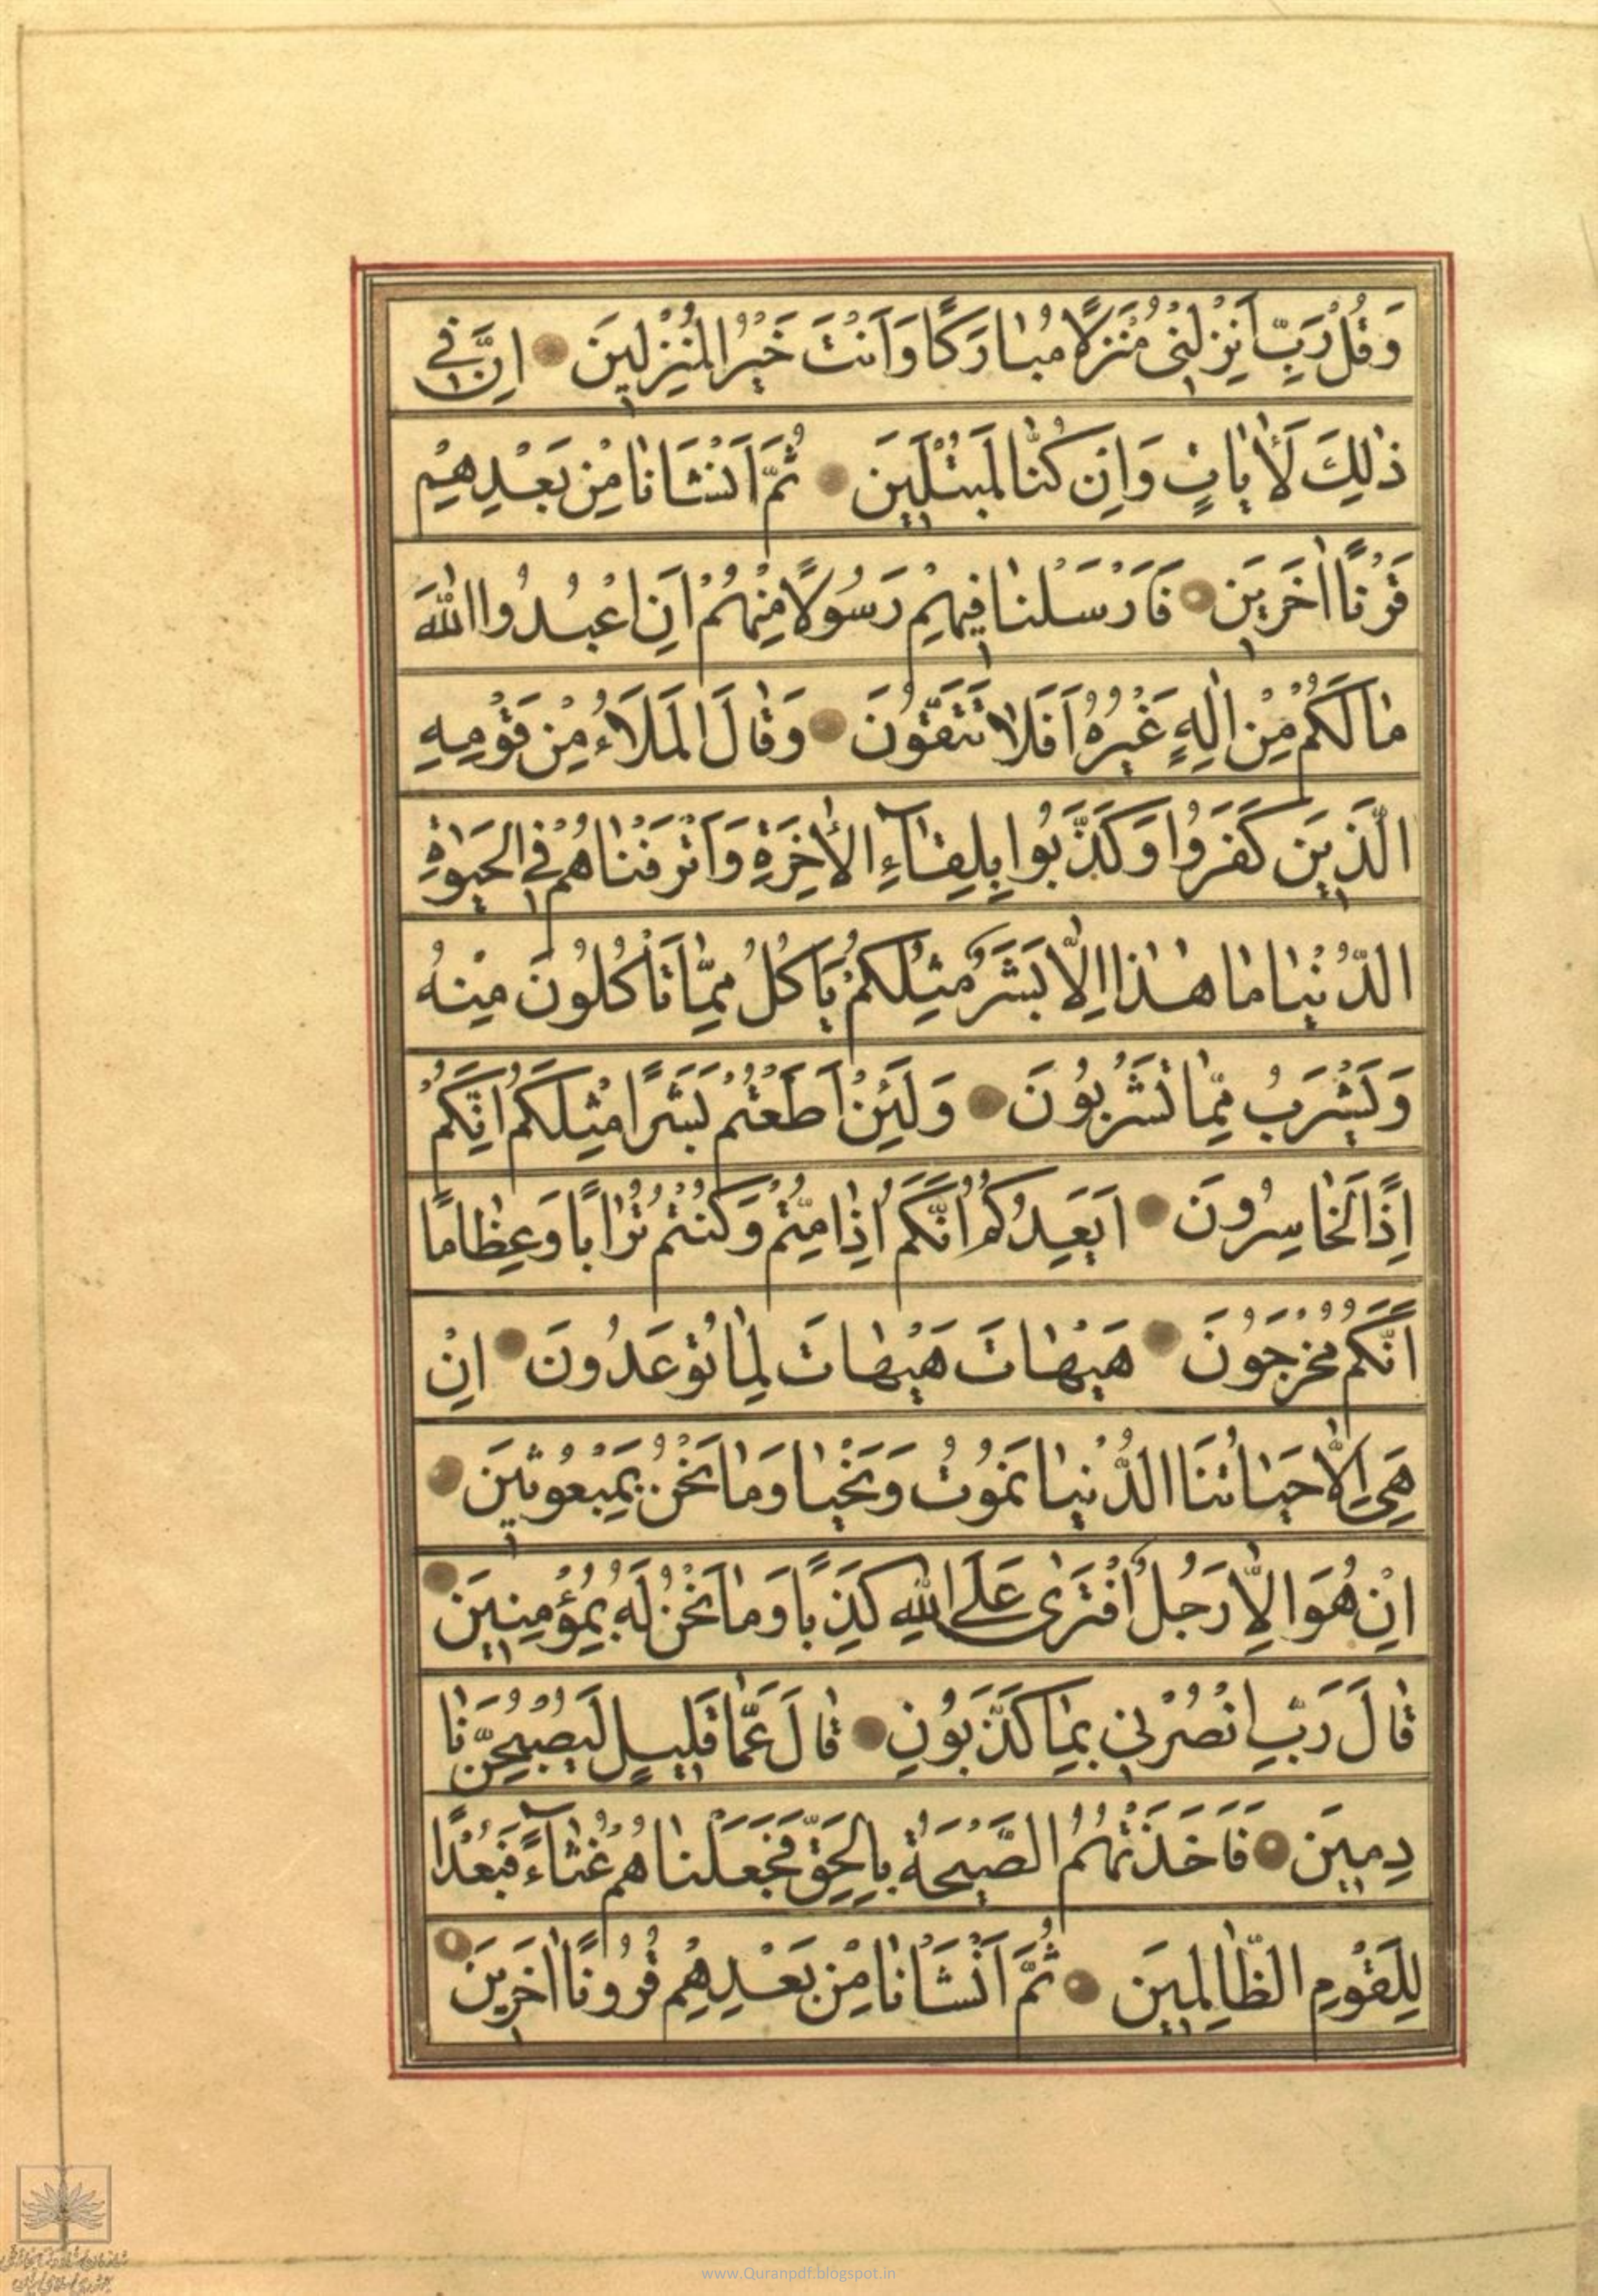 وَقُلْ رَبِّ اَنْزِلْنِى مُنْزَلًا مُبٰارَكًا وَاَنْتَ خَيْرُ الْمُنْزِلِينَ اِنَّ فِى
ذٰلِكَ لَأٰيٰاتٍ وَاِنْ كُنّٰا لَمُبْتَلِينَ ثُمَّ اَنْشَاْنٰا مِنْ بَعْدِهِمْ
قَرْنًا اٰخَرِينَ فَاَرْسَلْنٰا فِيهِمْ رَسُولًا مِنْهُمْ اَنِ اعْبُدُوا اللّٰهَ
مٰا لَكُمْ مِنْ اِلٰهٍ غَيْرُهُ اَفَلٰا تَتَّقُونَ وَقٰالَ الْمَلَاُ مِنْ قَوْمِهِ
الَّذِينَ كَفَرُوا وَكَذَّبُوا بِلِقٰآءِ الْأٰخِرَةِ وَاَتْرَفْنٰاهُمْ فِى الْحَيٰوةِ
الدُّنْيٰا مٰا هٰذٰا اِلّٰا بَشَرٌ مِثْلُكُمْ يَاْكُلُ مِمّٰا تَاْكُلُونَ مِنْهُ
وَيَشْرَبُ مِمّٰا تَشْرَبُونَ وَلَئِنْ اَطَعْتُمْ بَشَرًا مِثْلَكُمْ اِنَّكُمْ
اِذًا لَخٰاسِرُونَ اَيَعِدُكُمْ اَنَّكُمْ اِذٰا مِتُّمْ وَكُنْتُمْ تُرٰابًا وَعِظٰامًا
اَنَّكُمْ مُخْرَجُونَ هَيْهٰاتَ هَيْهٰاتَ لِمٰا تُوعَدُونَ اِنْ
هِىَ اِلّٰا حَيٰاتُنَا الدُّنْيٰا نَمُوتُ وَنَحْيٰا وَمٰا نَحْنُ بِمَبْعُوثِينَ
اِنْ هُوَ اِلّٰا رَجُلٌ افْتَرٰى عَلَى اللّٰهِ كَذِبًا وَمٰا نَحْنُ لَهُ بِمُؤْمِنِينَ
قٰالَ رَبِّ انْصُرْنِى بِمٰا كَذَّبُونِ قٰالَ عَمّٰا قَلِيلٍ لَيُصْبِحُنَّ نٰا
دِمِينَ فَاَخَذَتْهُمُ الصَّيْحَةُ بِالْحَقِّ فَجَعَلْنٰاهُمْ غُثٰآءً فَبُعْدًا
لِلْقَوْمِ الظّٰالِمِينَ ثُمَّ اَنْشَاْنٰا مِنْ بَعْدِهِمْ قُرُونًا اٰخَرِينَ
www.Quranpdf.blogspot.in